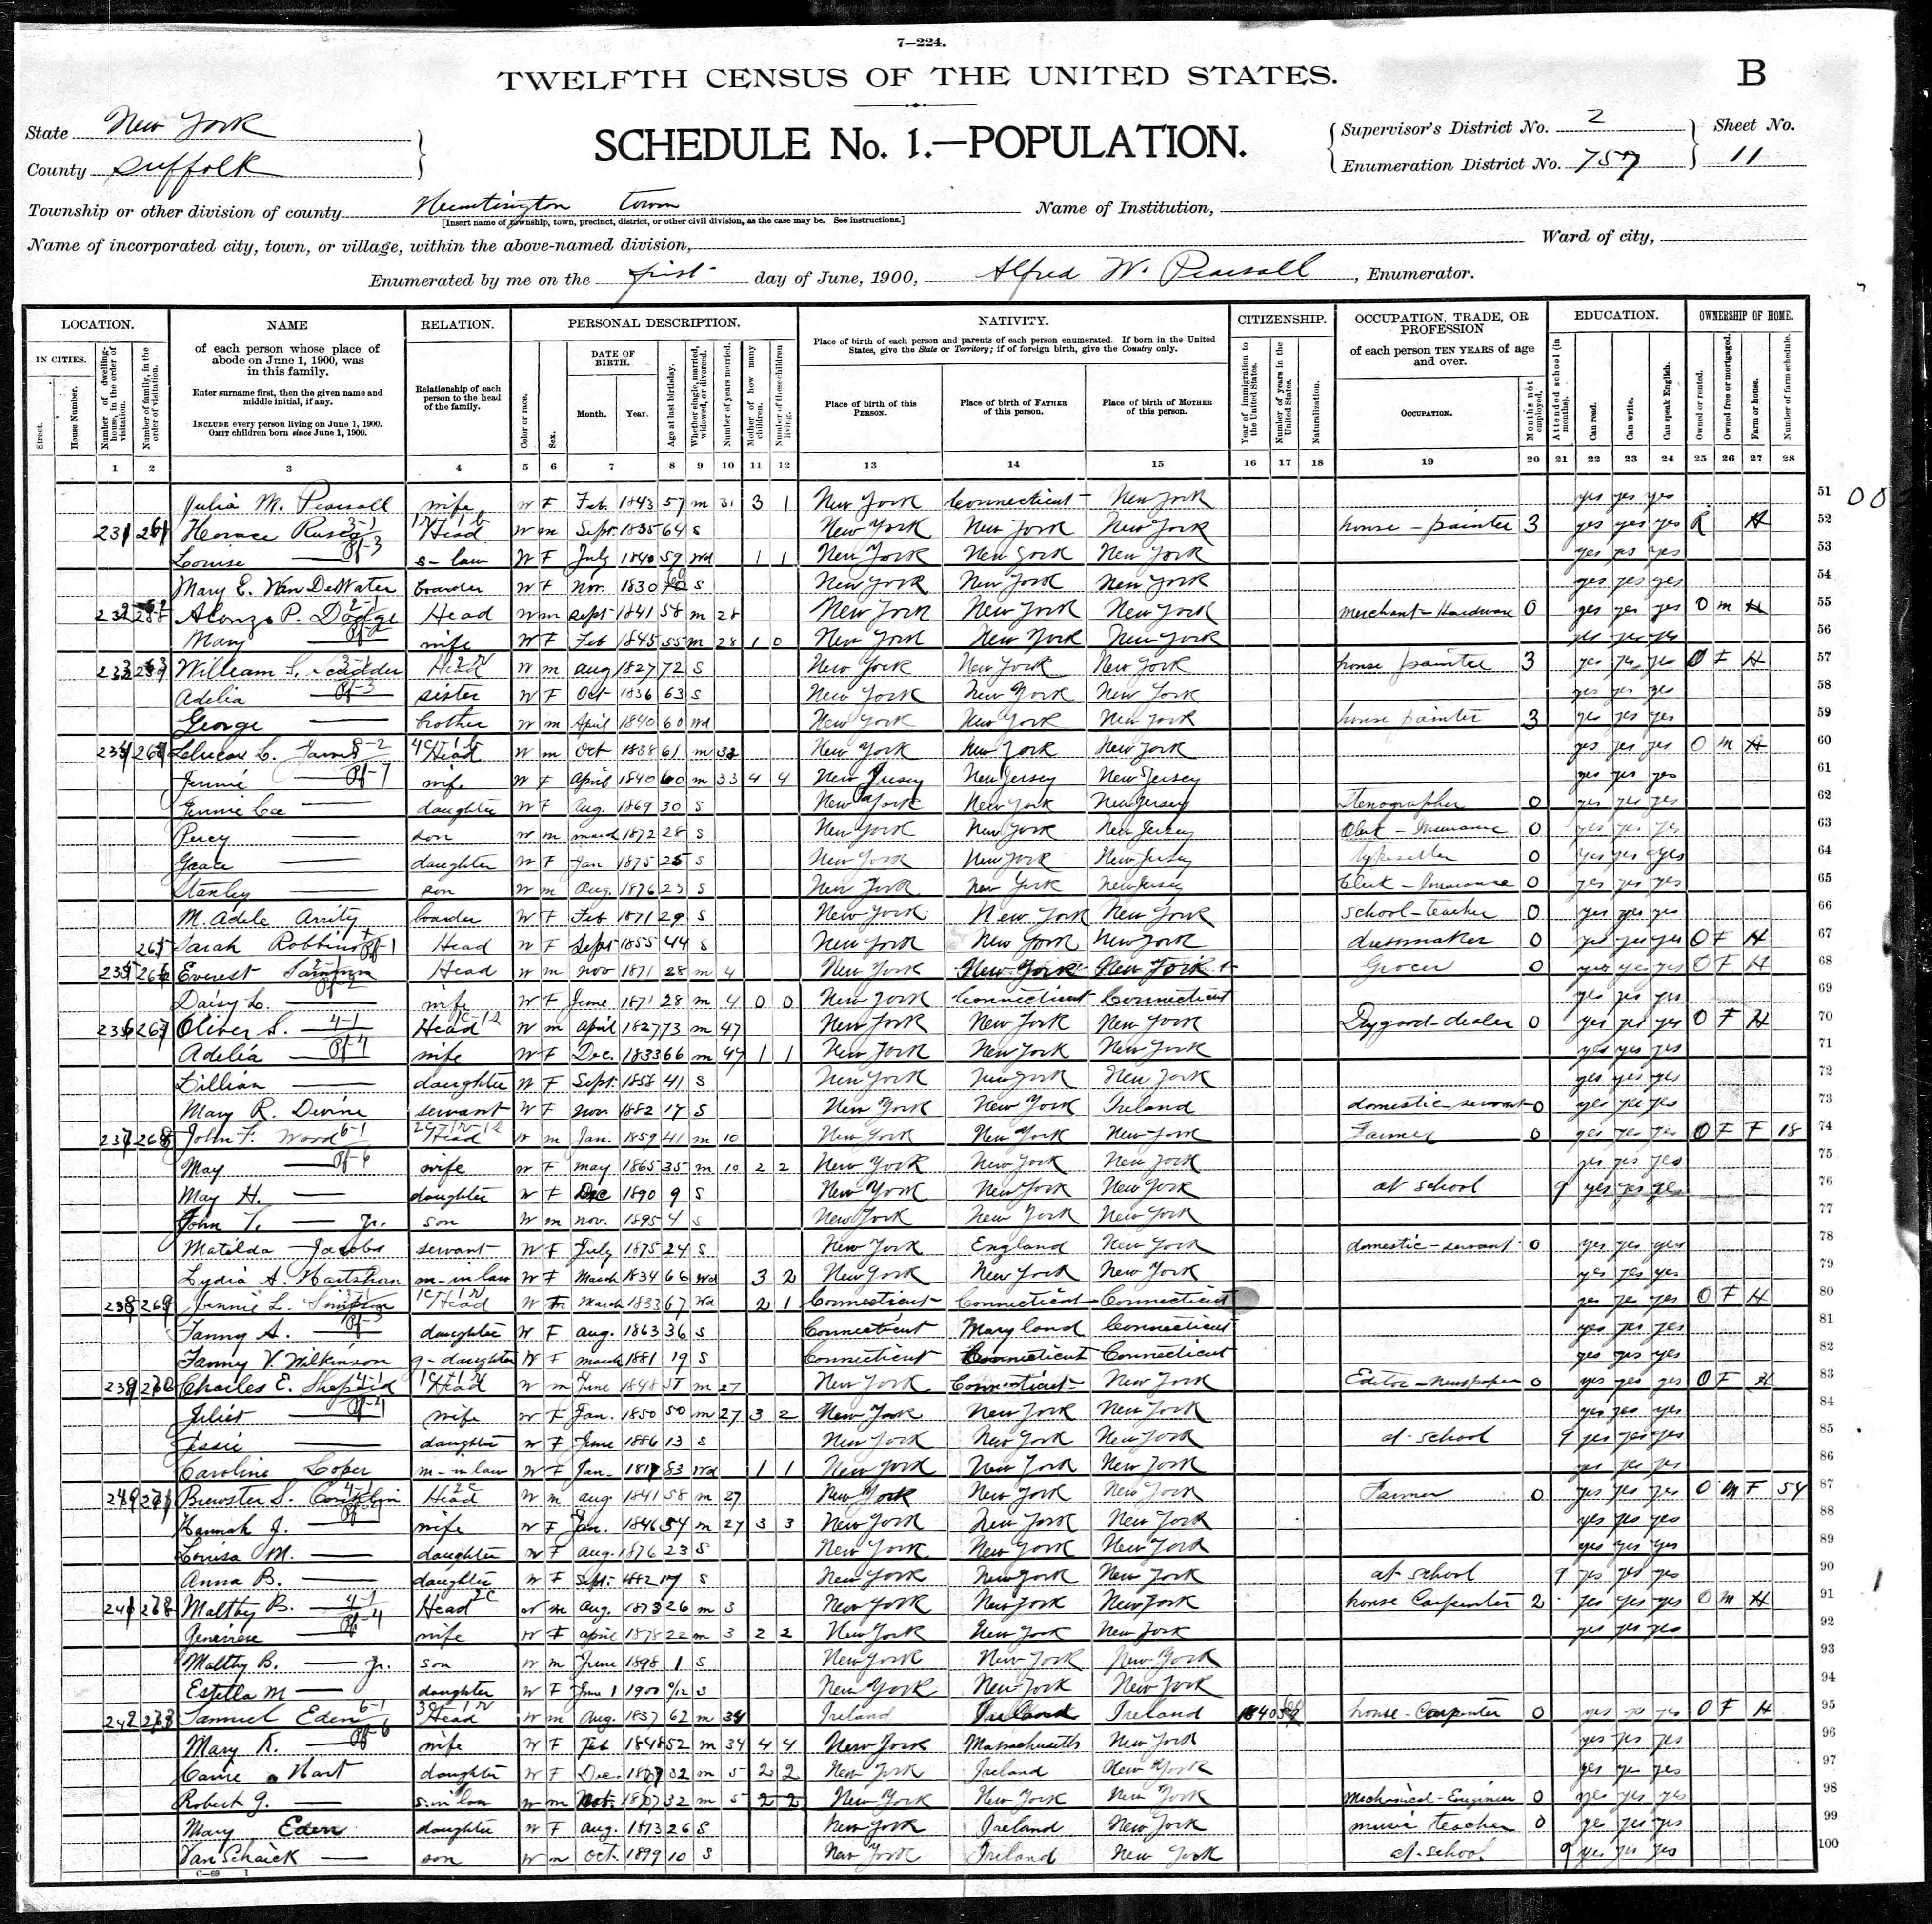 7—224.
TWELFTH CENSUS OF THE UNITED STATES.
B
State New York
County Suffolk
SCHEDULE No. 1.—POPULATION.
Supervisor's District No. 2
Enumeration District No. 757
Sheet No.
11
Township or other division of county Huntington town
[Insert name of township, town, precinct, district, or other civil division, as the case may be. See instructions.]
Name of Institution,
Name of incorporated city, town, or village, within the above-named division,
Ward of city,
Enumerated by me on the first day of June, 1900, Alfred W. Pearsall, Enumerator.
LOCATION. NAME RELATION. PERSONAL DESCRIPTION. NATIVITY. CITIZENSHIP. OCCUPATION, TRADE, OR PROFESSION EDUCATION. OWNERSHIP OF HOME.
IN CITIES. Street. House Number. Number of dwelling-house, in the order of visitation. Number of family, in the order of visitation.
of each person whose place of abode on June 1, 1900, was in this family.
Enter surname first, then the given name and middle initial, if any.
INCLUDE every person living on June 1, 1900. OMIT children born since June 1, 1900.
Relationship of each person to the head of the family.
Color or race. Sex. DATE OF BIRTH. Month. Year. Age at last birthday. Whether single, married, widowed, or divorced. Number of years married. Mother of how many children. Number of these children living.
Place of birth of each person and parents of each person enumerated. If born in the United States, give the State or Territory; if of foreign birth, give the Country only.
Place of birth of this PERSON. Place of birth of FATHER of this person. Place of birth of MOTHER of this person.
Year of immigration to the United States. Number of years in the United States. Naturalization.
of each person TEN YEARS of age and over.
OCCUPATION. Months not employed.
Attended school (in months). Can read. Can write. Can speak English.
Owned or rented. Owned free or mortgaged. Farm or house. Number of farm schedule.
1 2 3 4 5 6 7 8 9 10 11 12 13 14 15 16 17 18 19 20 21 22 23 24 25 26 27 28
Julia M. Pearsall wife W F Feb. 1843 57 m 31 3 1 New York Connecticut New York yes yes yes 51
231 261 Horace Head W m Sept. 1835 64 S New York New York New York house-painter 3 yes yes yes R H 52
Louise — s-law W F July 1840 59 Wd 1 1 New York New York New York yes yes yes 53
Mary E. Van DeWater boarder W F Nov. 1830 69 S New York New York New York yes yes yes 54
232 Alonzo P. Dodge Head W m Sept 1841 58 m 28 New York New York New York merchant-Hardware 0 yes yes yes O m H 55
Mary — wife W F Feb 1845 55 m 28 1 0 New York New York New York yes yes yes 56
233 William S. Scudder Head W m aug 1827 72 S New York New York New York house painter 3 yes yes yes O F H 57
Adelia — sister W F Oct 1836 63 S New York New York New York yes yes yes 58
George — brother W m April 1840 60 Wd New York New York New York house painter 3 yes yes yes 59
234 264 Head W m Oct 1838 61 m 33 New York New York New York yes yes yes O m H 60
Jennie — wife W F April 1840 60 m 33 4 4 New Jersey New Jersey New Jersey yes yes yes 61
— daughter W F Aug. 1869 30 S New York New York New Jersey Stenographer 0 yes yes yes 62
Percy — son W m march 1872 28 S New York New York New Jersey Clerk-Insurance 0 yes yes yes 63
Grace — daughter W F Jan 1875 25 S New York New York New Jersey Typesetter 0 yes yes yes 64
Stanley — son W m Aug. 1876 23 S New York New York New Jersey Clerk-Insurance 0 yes yes yes 65
M. Adele Arrity boarder W F Feb 1871 29 S New York New York New York school-teacher 0 yes yes yes 66
265 Sarah Robbins Head W F Sept 1855 44 S New York New York New York dressmaker 0 yes yes yes O F H 67
235 266 Everest Sammis Head W m nov 1871 28 m 4 New York New York New York Grocer 0 yes yes yes O F H 68
Daisy L. — wife W F June 1871 28 m 4 0 0 New York Connecticut Connecticut yes yes yes 69
236 267 Oliver S. — Head W m April 1827 73 m 47 New York New York New York Drygood-dealer 0 yes yes yes O F H 70
Adelia — wife W F Dec. 1833 66 m 47 1 1 New York New York New York yes yes yes 71
Lillian — daughter W F Sept. 1858 41 S New York New York New York yes yes yes 72
Mary R. Devine servant W F nov. 1882 17 S New York New York Ireland domestic-servant 0 yes yes yes 73
237 268 John F. Wood Head W m Jan. 1859 41 m 10 New York New York New York Farmer 0 yes yes yes O F F 18 74
May — wife W F may 1865 35 m 10 2 2 New York New York New York yes yes yes 75
May H. — daughter W F Dec 1890 9 S New York New York New York at school 9 yes yes yes 76
John T. — Jr. son W m nov. 1895 4 S New York New York New York 77
Matilda Jacobs servant W F July 1875 24 S New York England New York domestic-servant 0 yes yes yes 78
Lydia A. Hartshorn m-in law W F March 1834 66 Wd 3 2 New York New York New York yes yes yes 79
238 269 Jennie L. Simpson Head W F March 1833 67 Wd 2 1 Connecticut Connecticut Connecticut yes yes yes O F H 80
Fanny A. — daughter W F aug. 1863 36 S Connecticut Maryland Connecticut yes yes yes 81
Fanny V. Wilkinson g-daughter W F march 1881 19 S Connecticut Connecticut Connecticut yes yes yes 82
239 270 Charles E. Shepard Head W m June 1848 51 m 27 New York Connecticut New York Editor-Newspaper 0 yes yes yes O F H 83
Juliet — wife W F Jan. 1850 50 m 27 3 2 New York New York New York yes yes yes 84
Jessie — daughter W F June 1886 13 S New York New York New York at-school 9 yes yes yes 85
Caroline Loper m-in law W F Jan. 1817 83 Wd 1 1 New York New York New York yes yes yes 86
240 271 Brewster S. Conklin Head W m aug 1841 58 m 27 New York New York New York Farmer 0 yes yes yes O M F 54 87
Hannah J. — wife W F Jan. 1846 54 m 27 3 3 New York New York New York yes yes yes 88
Louisa M. — daughter W F aug. 1876 23 S New York New York New York yes yes yes 89
Anna B. — daughter W F Sept. 1882 17 S New York New York New York at-school 9 yes yes yes 90
241 272 Maltby B. — Head W m aug. 1873 26 m 3 New York New York New York house Carpenter 2 yes yes yes O m H 91
Genevieve — wife W F april 1878 22 m 3 2 2 New York New York New York yes yes yes 92
Maltby B. — Jr. son W m June 1898 1 S New York New York New York 93
Estella M — daughter W F June 1 1900 0/12 S New York New York New York 94
242 273 Samuel Eden Head W m Aug. 1837 62 m 34 Ireland Ireland Ireland 1840 house-Carpenter 0 yes yes yes O F H 95
Mary K. — wife W F Feb 1848 52 m 34 4 4 New York Massachusetts New York yes yes yes 96
Carrie Hart daughter W F Dec. 1867 32 m 5 2 2 New York Ireland New York yes yes yes 97
Robert J. — s-in law W m Nov. 1867 32 m 5 2 2 New York New York New York Mechanical-Engineer 0 yes yes yes 98
Mary Eden daughter W F aug. 1873 26 S New York Ireland New York music teacher 0 ye yes yes 99
Van Schaick — son W m Oct. 1899 10 S New York Ireland New York at-school 9 yes yes yes 100
C—69 1